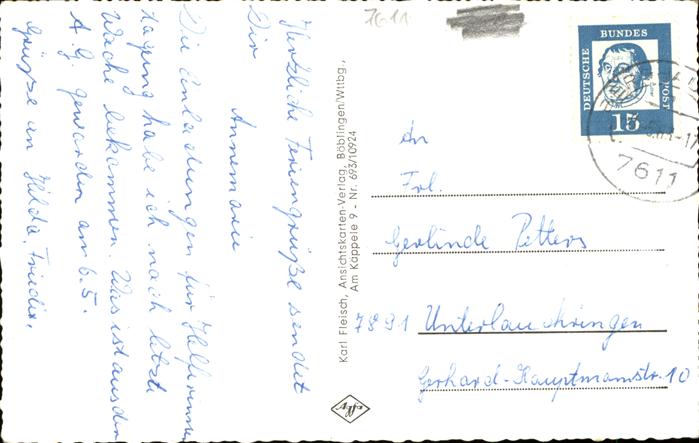 7611
Herzliche Feriengrüße sendet
Dir
Annemarie
Die Einladungen für Helferinnen
tagung habe ich nach letzte
Woche bekommen. Was ist aus den
A. G. geworden am 6.5.
Grüße an Hilda, Frieda.
Karl Fleisch, Ansichtskarten-Verlag, Böblingen/Wttbg.,
Am Käppele 9 - Nr. 693/10924
Agfa
DEUTSCHE
BUNDES
POST
15
7611
An
Frl.
Gerlinde Petters
7891 Unterlauchringen
Gerhard-Hauptmannstr. 10